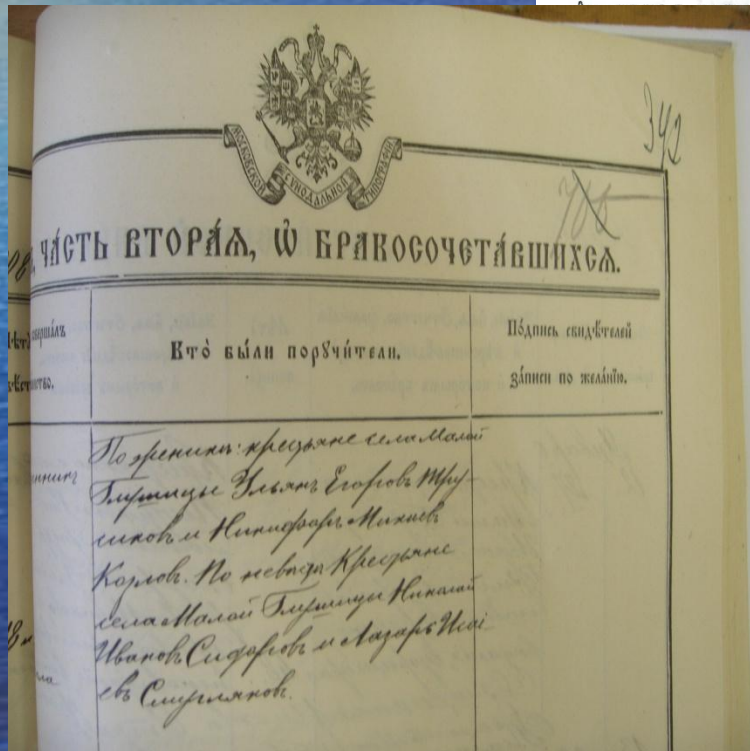 342
МОСКОВСКОЙ СѴНОДАЛЬНОЙ ТИПОГРАФІИ
ЧА́СТЬ ВТОРА́Ѧ, Ѽ БРАКОСОЧЕТА́ВШИХСѦ.
Кто̀ бы́ли порꙋчи́тели.
По́дпись свидѣ́телей
за́писи по жела́нїю.
По женихѣ: крестьяне села Малой
Глушицы Ульянъ Егоровъ Тру-
сиковъ и Никифоръ Михаевъ
Козловъ. По невѣстѣ Крестьяне
села Малой Глушицы Николай
Ивановъ Сидоровъ и Лазарь Исаі
евъ Смугляковъ.